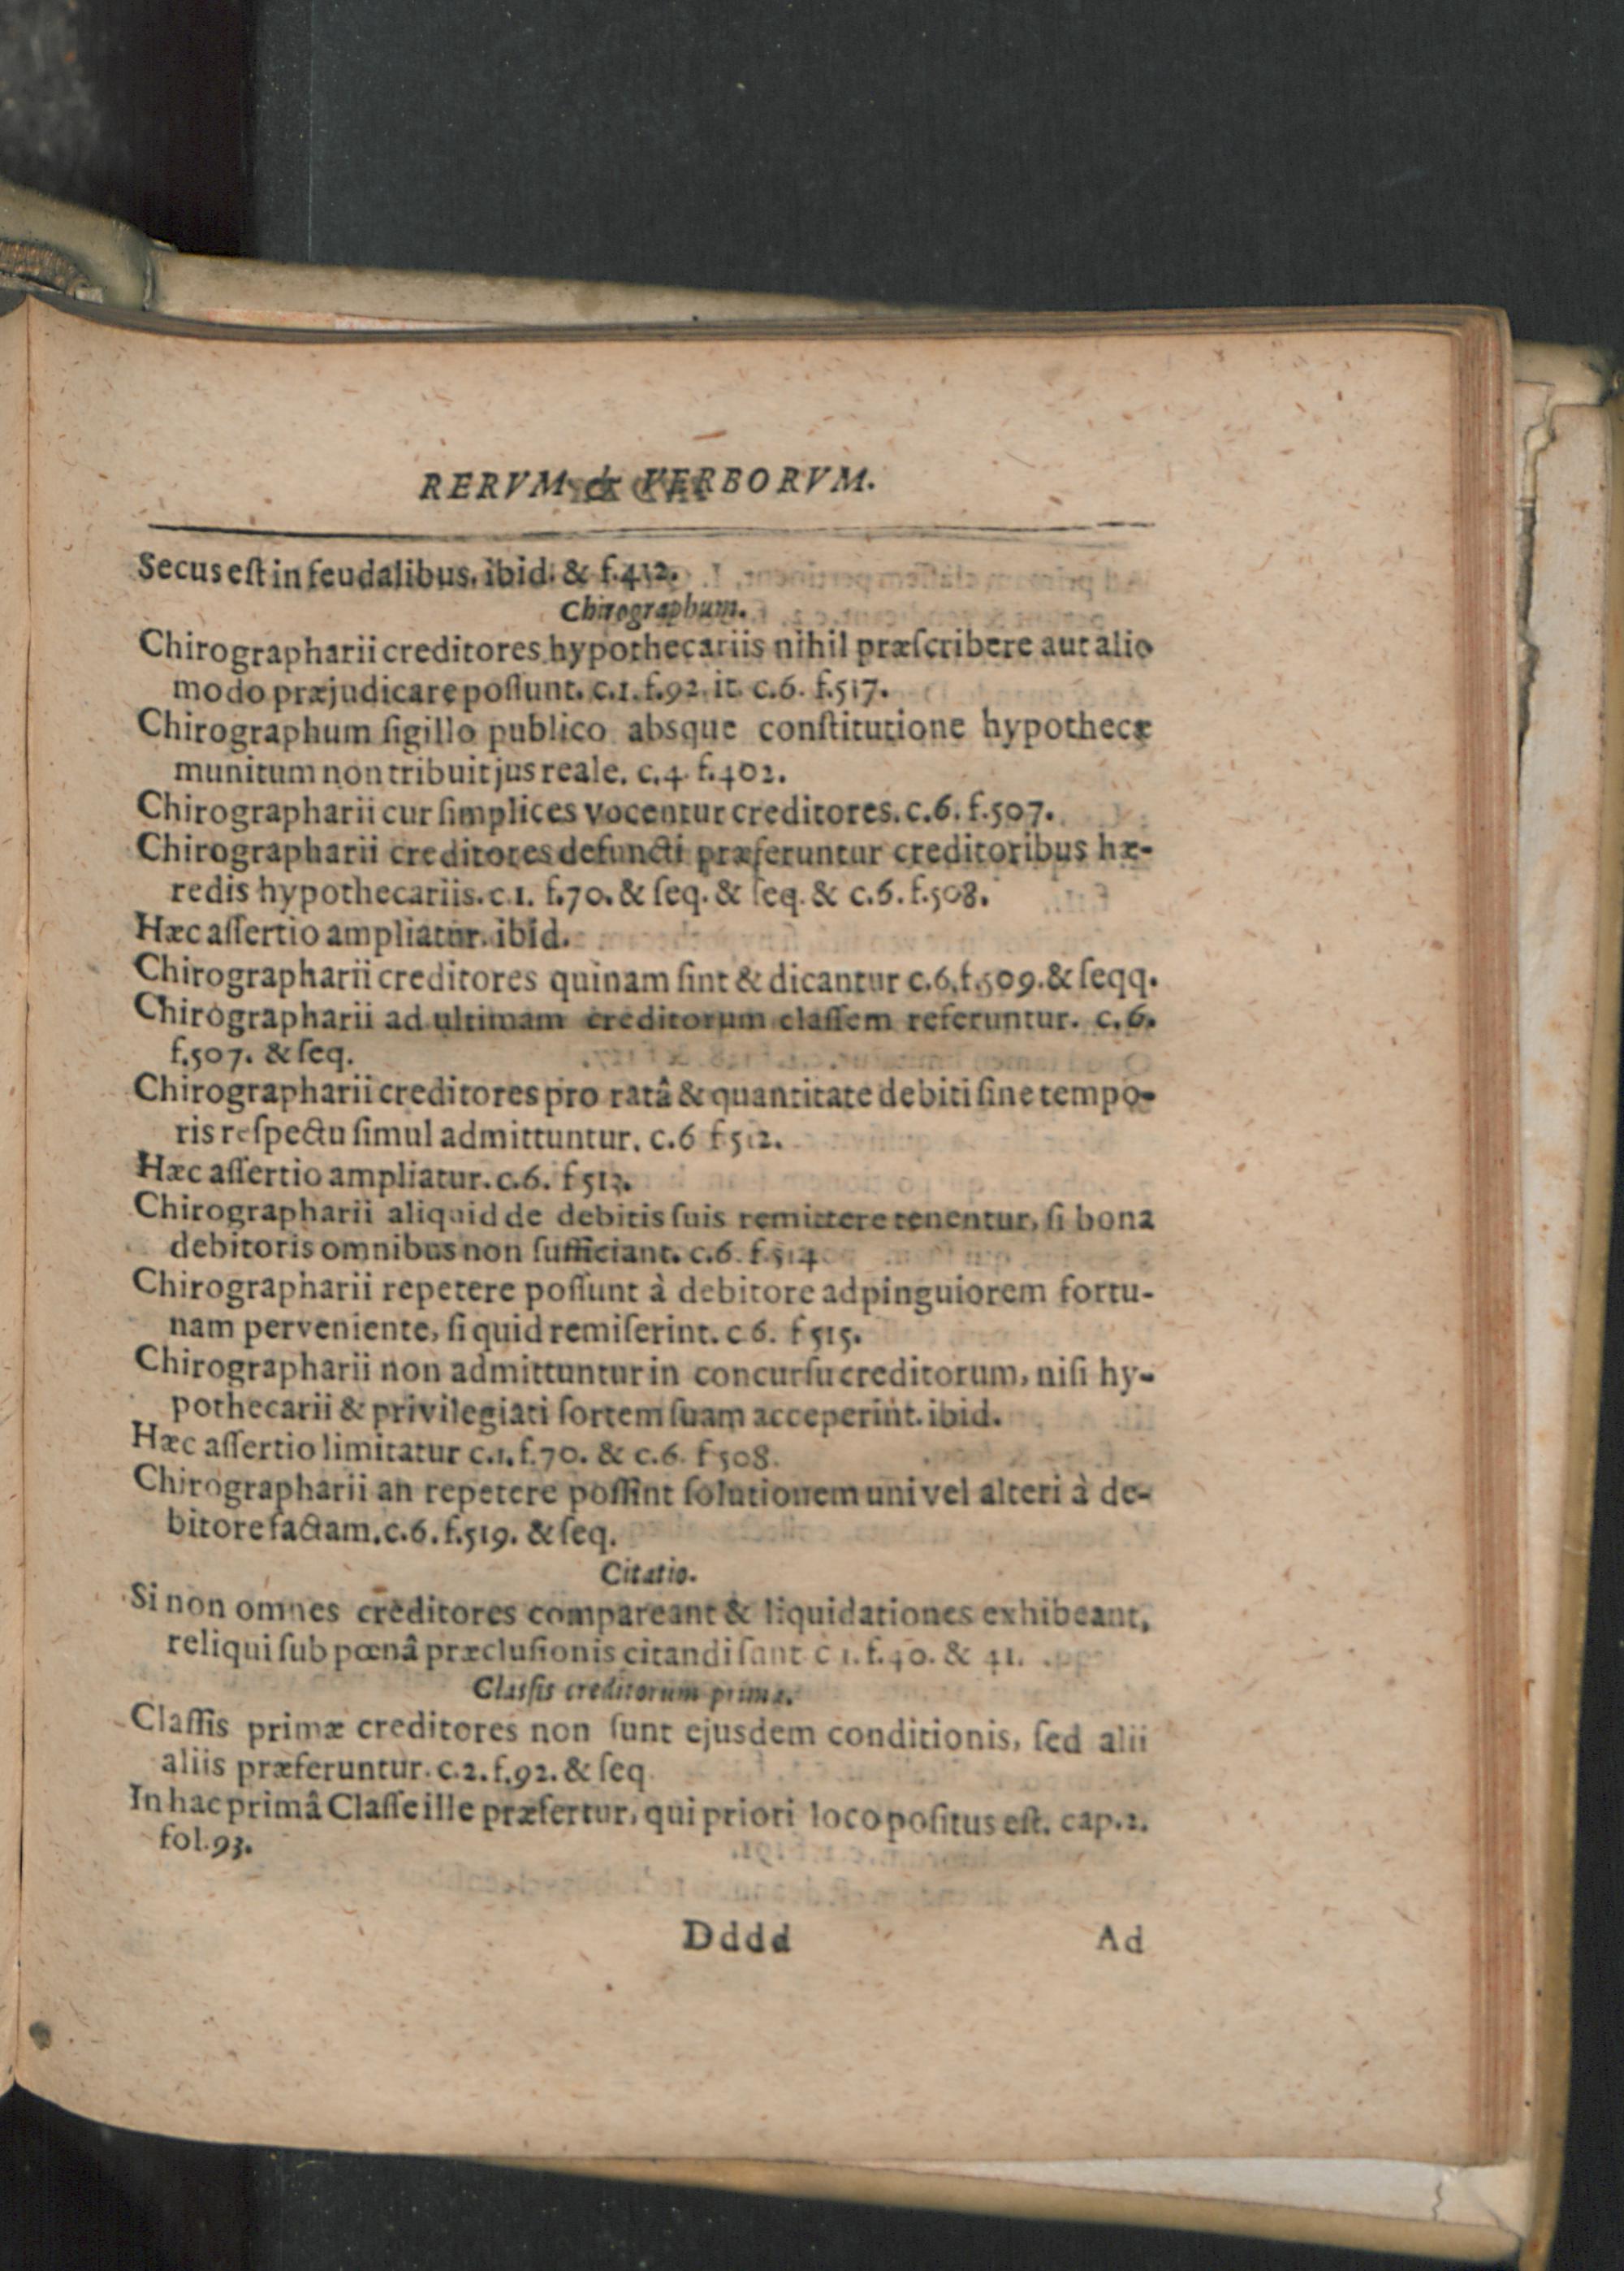 RERVM & VERBORVM.
Secus eſt in feudalibus. ibid. & f.432.
Chirographum.
Chirographarii creditores hypothecariis nihil præſcribere aut alio
modo præjudicare poſſunt. c.1. f.92. it. c.6. f.517.
Chirographum ſigillo publico absque conſtitutione hypothecæ
munitum non tribuit jus reale. c.4. f.402.
Chirographarii cur ſimplices vocentur creditores. c.6. f.507.
Chirographarii creditores defuncti præferuntur creditoribus hæ-
redis hypothecariis. c.1. f.70. & ſeq. & ſeq. & c.6. f.508.
Hæc aſſertio ampliatur. ibid.
Chirographarii creditores quinam ſint & dicantur c.6. f.509. & ſeqq.
Chirographarii ad ultimam creditorum claſſem referuntur. c.6.
f.507. & ſeq.
Chirographarii creditores pro ratâ & quantitate debiti ſine tempo-
ris reſpectu ſimul admittuntur. c.6 f 512.
Hæc aſſertio ampliatur. c.6. f 513.
Chirographarii aliquid de debitis ſuis remittere tenentur, ſi bona
debitoris omnibus non ſufficiant. c.6. f.514
Chirographarii repetere poſſunt à debitore ad pinguiorem fortu-
nam perveniente, ſi quid remiſerint. c 6. f 515.
Chirographarii non admittuntur in concurſu creditorum, niſi hy-
pothecarii & privilegiati ſortem ſuam acceperint. ibid.
Hæc aſſertio limitatur c.1. f.70. & c.6. f 508.
Chirographarii an repetere poſſint ſolutionem uni vel alteri à de-
bitore factam. c.6. f.519. & ſeq.
Citatio.
Si non omnes creditores compareant & liquidationes exhibeant,
reliqui ſub pœnâ præcluſionis citandi ſunt c 1. f.40. & 41.
Claſſis creditorum prima.
Claſſis primæ creditores non ſunt ejusdem conditionis, ſed alii
aliis præferuntur. c.2. f.92. & ſeq
In hac primâ Claſſe ille præfertur, qui priori loco poſitus eſt. cap.2.
fol.93.
Dddd Ad